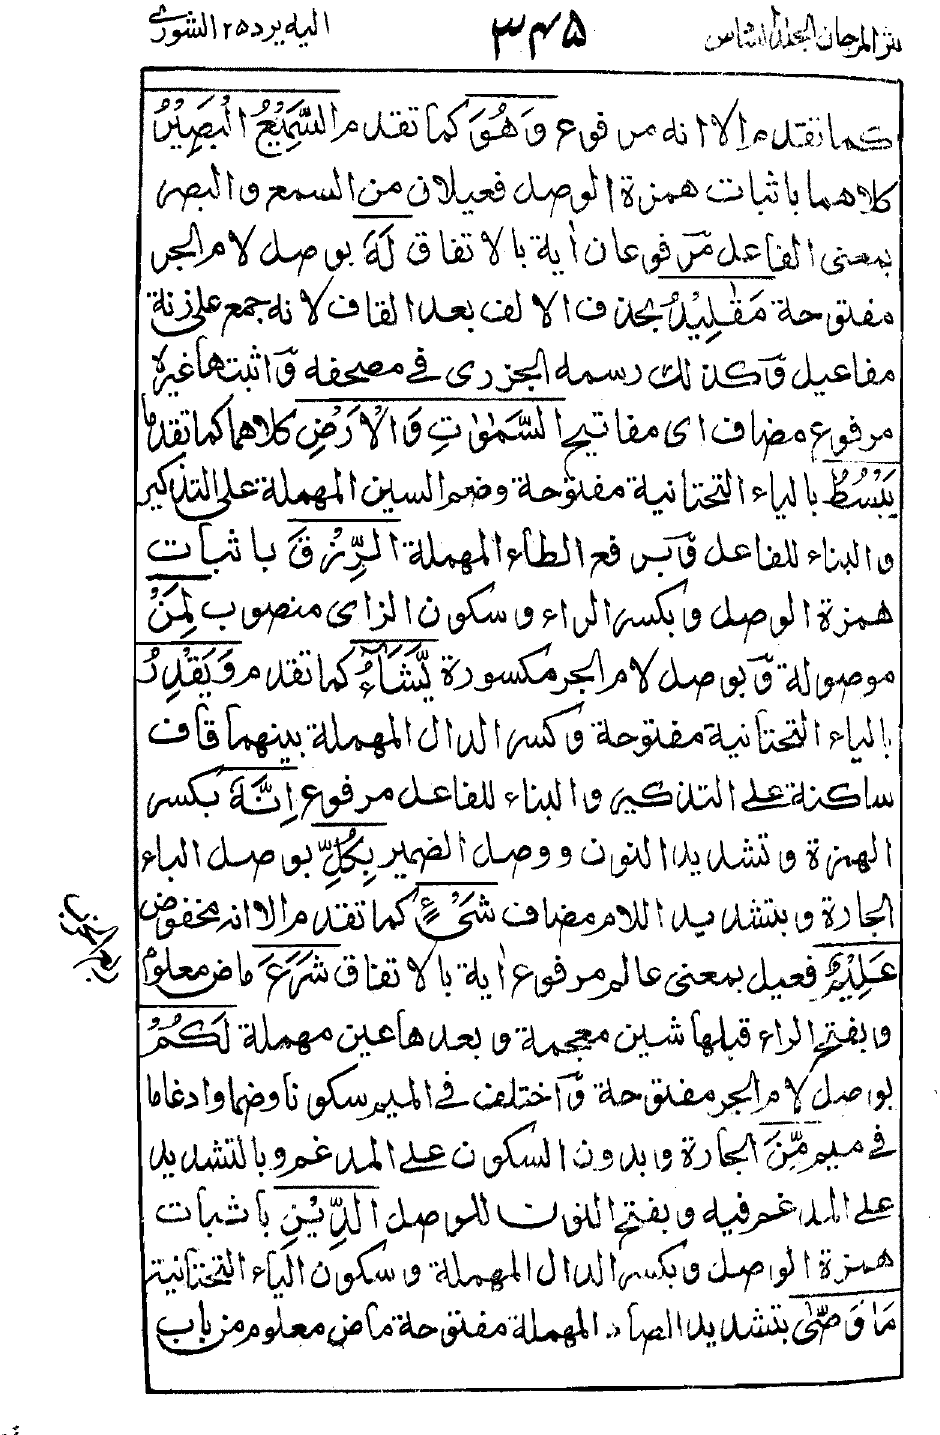 نثر المرجان الجلد السادس ٣٤٥ اليه يرد ٢٥ الشورى
كما تقدم الا انه مرفوع وَهُوَ كما تقدم السَّمِيْعُ الْبَصِيْرُ
كلاهما باثبات همزة الوصل فعيلان من السمع والبصر
بمعنى الفاعل مرفوعان اٰية بالاتفاق لَهٗ بوصل لام الجر
مفتوحة مَقٰلِيْدُ بحذف الالف بعد القاف لانه جمع على زنة
مفاعيل وكذلك رسمه الجزرى فى مصحفه واثبتها غيره
مرفوع مضاف اى مفاتيح السَّمٰوٰتِ وَالْاَرْضِ كلاهما كما تقدما
يَبْسُطُ بالياء التحتانية مفتوحة وضم السين المهملة على التذكير
والبناء للفاعل وبرفع الطاء المهملة الرِّزْقَ باثبات
همزة الوصل وبكسر الراء وسكون الزاى منصوب لِمَنْ
موصولة وبوصل لام الجر مكسورة يَّشَآءُ كما تقدم وَيَقْدِرُ
بالياء التحتانية مفتوحة وكسر الدال المهملة بينهما قاف
ساكنة على التذكير والبناء للفاعل مرفوع اِنَّهٗ بكسر
الهمزة وتشديد النون ووصل الضمير بِكُلِّ بوصل الباء
الجارة وبتشديد اللام مضاف شَيْءٍ كما تقدم الا انه مخفوض
عَلِيْمٌ فعيل بمعنى عالم مرفوع اٰية بالاتفاق شَرَعَ ماض معلوم
وبفتح الراء قبلها شين معجمة وبعدها عين مهملة لَكُمْ
بوصل لام الجر مفتوحة واختلف فى الميم سكونا وضما وادغاما
فى ميم مِّنَ الجارة وبدون السكون على المدغم وبالتشديد
على المدغم فيه وبفتح النون للوصل الدِّيْنِ باثبات
همزة الوصل وبكسر الدال المهملة وسكون الياء التحتانية
مَا وَصّٰى بتشديد الصاد المهملة مفتوحة ماض معلوم من باب